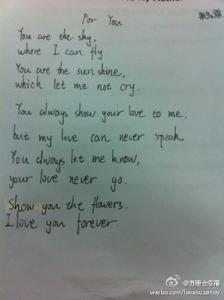 For You
You are the sky,
where I can fly
You are the sun shine,
which let me not cry.
You always show your love to me,
but my love can never speak
You always let me know,
your love never go.
Show you the flowers.
I love you forever.
weibo.com/lovesusanoy